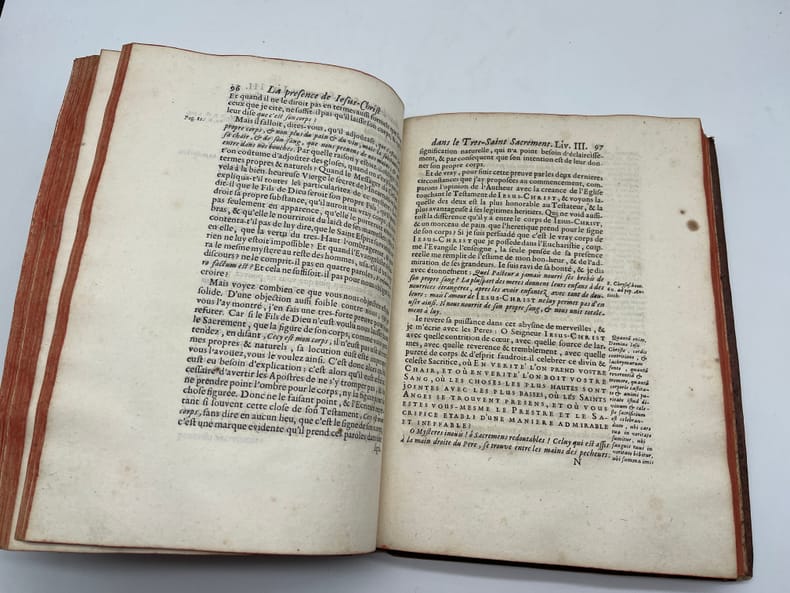 96 La presence de Iesus-Christ
Et quand il ne le diroit pas en termes aussi formels
ceux que je cite, ne suffit-il pas qu'il laisse
leur dise que c'est son corps?
Pag. 82.
Mais il falloit, dites-vous, qu'il adjoûtast, que
propre corps, & non plus du pain & du vin, mais
sa chair, & de son sang, que nous prenons de nos
entre dans nos bouches. Par quelle raison y estoit
t'on coûtume d'adjoûter des gloses, quand on
termes propres & naturels? Quand le Messager
vela à la bien-heureuse Vierge le secret de l'
expliqua-t'il toutes les particularitez de ce
dit-il que le Fils de Dieu seroit son propre Fils,
sa propre substance, qu'il auroit un vray corps,
pas seulement en apparence, qu'elle le porteroit
bras, & qu'elle le nourriroit du laict de ses
contenta-t'il pas de luy dire, que le Saint Esprit
en elle, que la vertu du tres-Haut l'ombrageroit,
rien ne luy estoit impossible? Et quand l'Evangeliste
ra le mesme mystere au reste des hommes, usa-t'il d'un
discours? ne le comprit-il pas en quatre paroles,
ro factum est? Et cela ne suffisoit-il pas pour nous
croire?
Mais voyez combien ce que vous nous objectez
solide. D'une objection aussi foible contre nous
vous l'ay montré, j'en fais une tres-forte preuve
refuter. Car si le Fils de Dieu n'eust voulu nous
le Sacrement, que la figure de son corps, comme
tendez, en disant, Cecy est mon corps; il n'eust pas usé
mes propres & naturels, sa locution eust esté
vous l'avouez, vous le voulez ainsi. C'est donc alors
eust eu besoin d'explication: c'est alors qu'il eust esté
cessaire d'avertir les Apostres de ne s'y tromper pas,
ne prendre point l'ombre pour le corps, ny la
chose figurée. Donc ne le faisant point, & l'Ecriture
tant si souvent cette close de son Testament, Cecy est
corps, sans dire en aucun lieu, que c'est le signe de son
c'est une marque evidente qu'il prend ces paroles dans
dans le Tres-Saint Sacrement. Liv. III. 97
signification naturelle, qui n'a point besoin d'éclaircisse-
ment, & par consequent que son intention est de leur don-
ner son propre corps.
Et de vray, pour finir cette preuve par les deux dernieres
circonstances que j'ay proposées au commencement, com-
parons l'opinion de l'Autheur avec la creance de l'Eglise
touchant le Testament de IESUS-CHRIST, & voyons la-
quelle des deux est la plus honorable au Testateur, & la
plus avantageuse à ses legitimes heritiers. Qui ne void aussi-
tost la difference qu'il y a entre le corps de IESUS-CHRIST,
& un morceau de pain que l'heretique prend pour le signe
de son corps? Si je suis persuadé que c'est le vray corps de
IESUS-CHRIST que je possede dans l'Eucharistie, com-
me l'Evangile l'enseigne, la seule pensée de sa presence
reelle me remplit de l'estime de mon bon-heur, & de l'ad-
miration de ses grandeurs. Ie suis ravi de sa bonté, & je dis
avec étonnement: Quel Pasteur a jamais nourri ses brebis de
son propre sang? La pluspart des meres donnent leurs enfans à des
nourrices étrangeres, apres les avoir enfantez avec tant de dou-
leur: mais l'amour de IESUS-CHRIST ne luy permet pas d'en
user ainsi. Il nous nourrit de son propre sang, & nous unit totale-
ment à luy.
S. Chrysost. hom.
60. ad pop. An-
tioch.
Ie revere sa puissance dans cet abysme de merveilles, &
je m'écrie avec les Peres: O Seigneur IESUS-CHRIST
avec quelle contrition de cœur, avec quelle source de lar-
mes, avec quelle reverence & tremblement, avec quelle
pureté de corps & d'esprit faudroit-il celebrer ce divin &
celeste Sacrifice, OÙ EN VERITÉ L'ON PREND VOSTRE
CHAIR, ET OÙ EN VERITÉ L'ON BOIT VOSTRE
SANG, OÙ LES CHOSES LES PLUS HAUTES SONT
JOINTES AVEC LES PLUS BASSES, OÙ LES SAINTS
ANGES SE TROUVENT PRESENS, ET OÙ VOUS
ESTES VOUS-MESME LE PRESTRE ET LE SA-
CRIFICE ETABLI D'UNE MANIERE ADMIRABLE
ET INEFFABLE!
Quanta enim,
Domine Iesu
Christe, cordis
contritione, &
lachrymarum
fonte, quanta
reverentia &
tremore, quanta
corporis castita-
te & animi pu-
ritate, istud di-
vinum & cæle-
ste sacrificium
est celebran-
dum, ubi caro
tua in veritate
sumitur, ubi
sanguis tuus in
veritate bibitur,
ubi summa imis
O Mysteres inouïs! ô Sacremens redoutables! Celuy qui est assis
à la main droite du Pere, se trouve entre les mains des pecheurs:
N